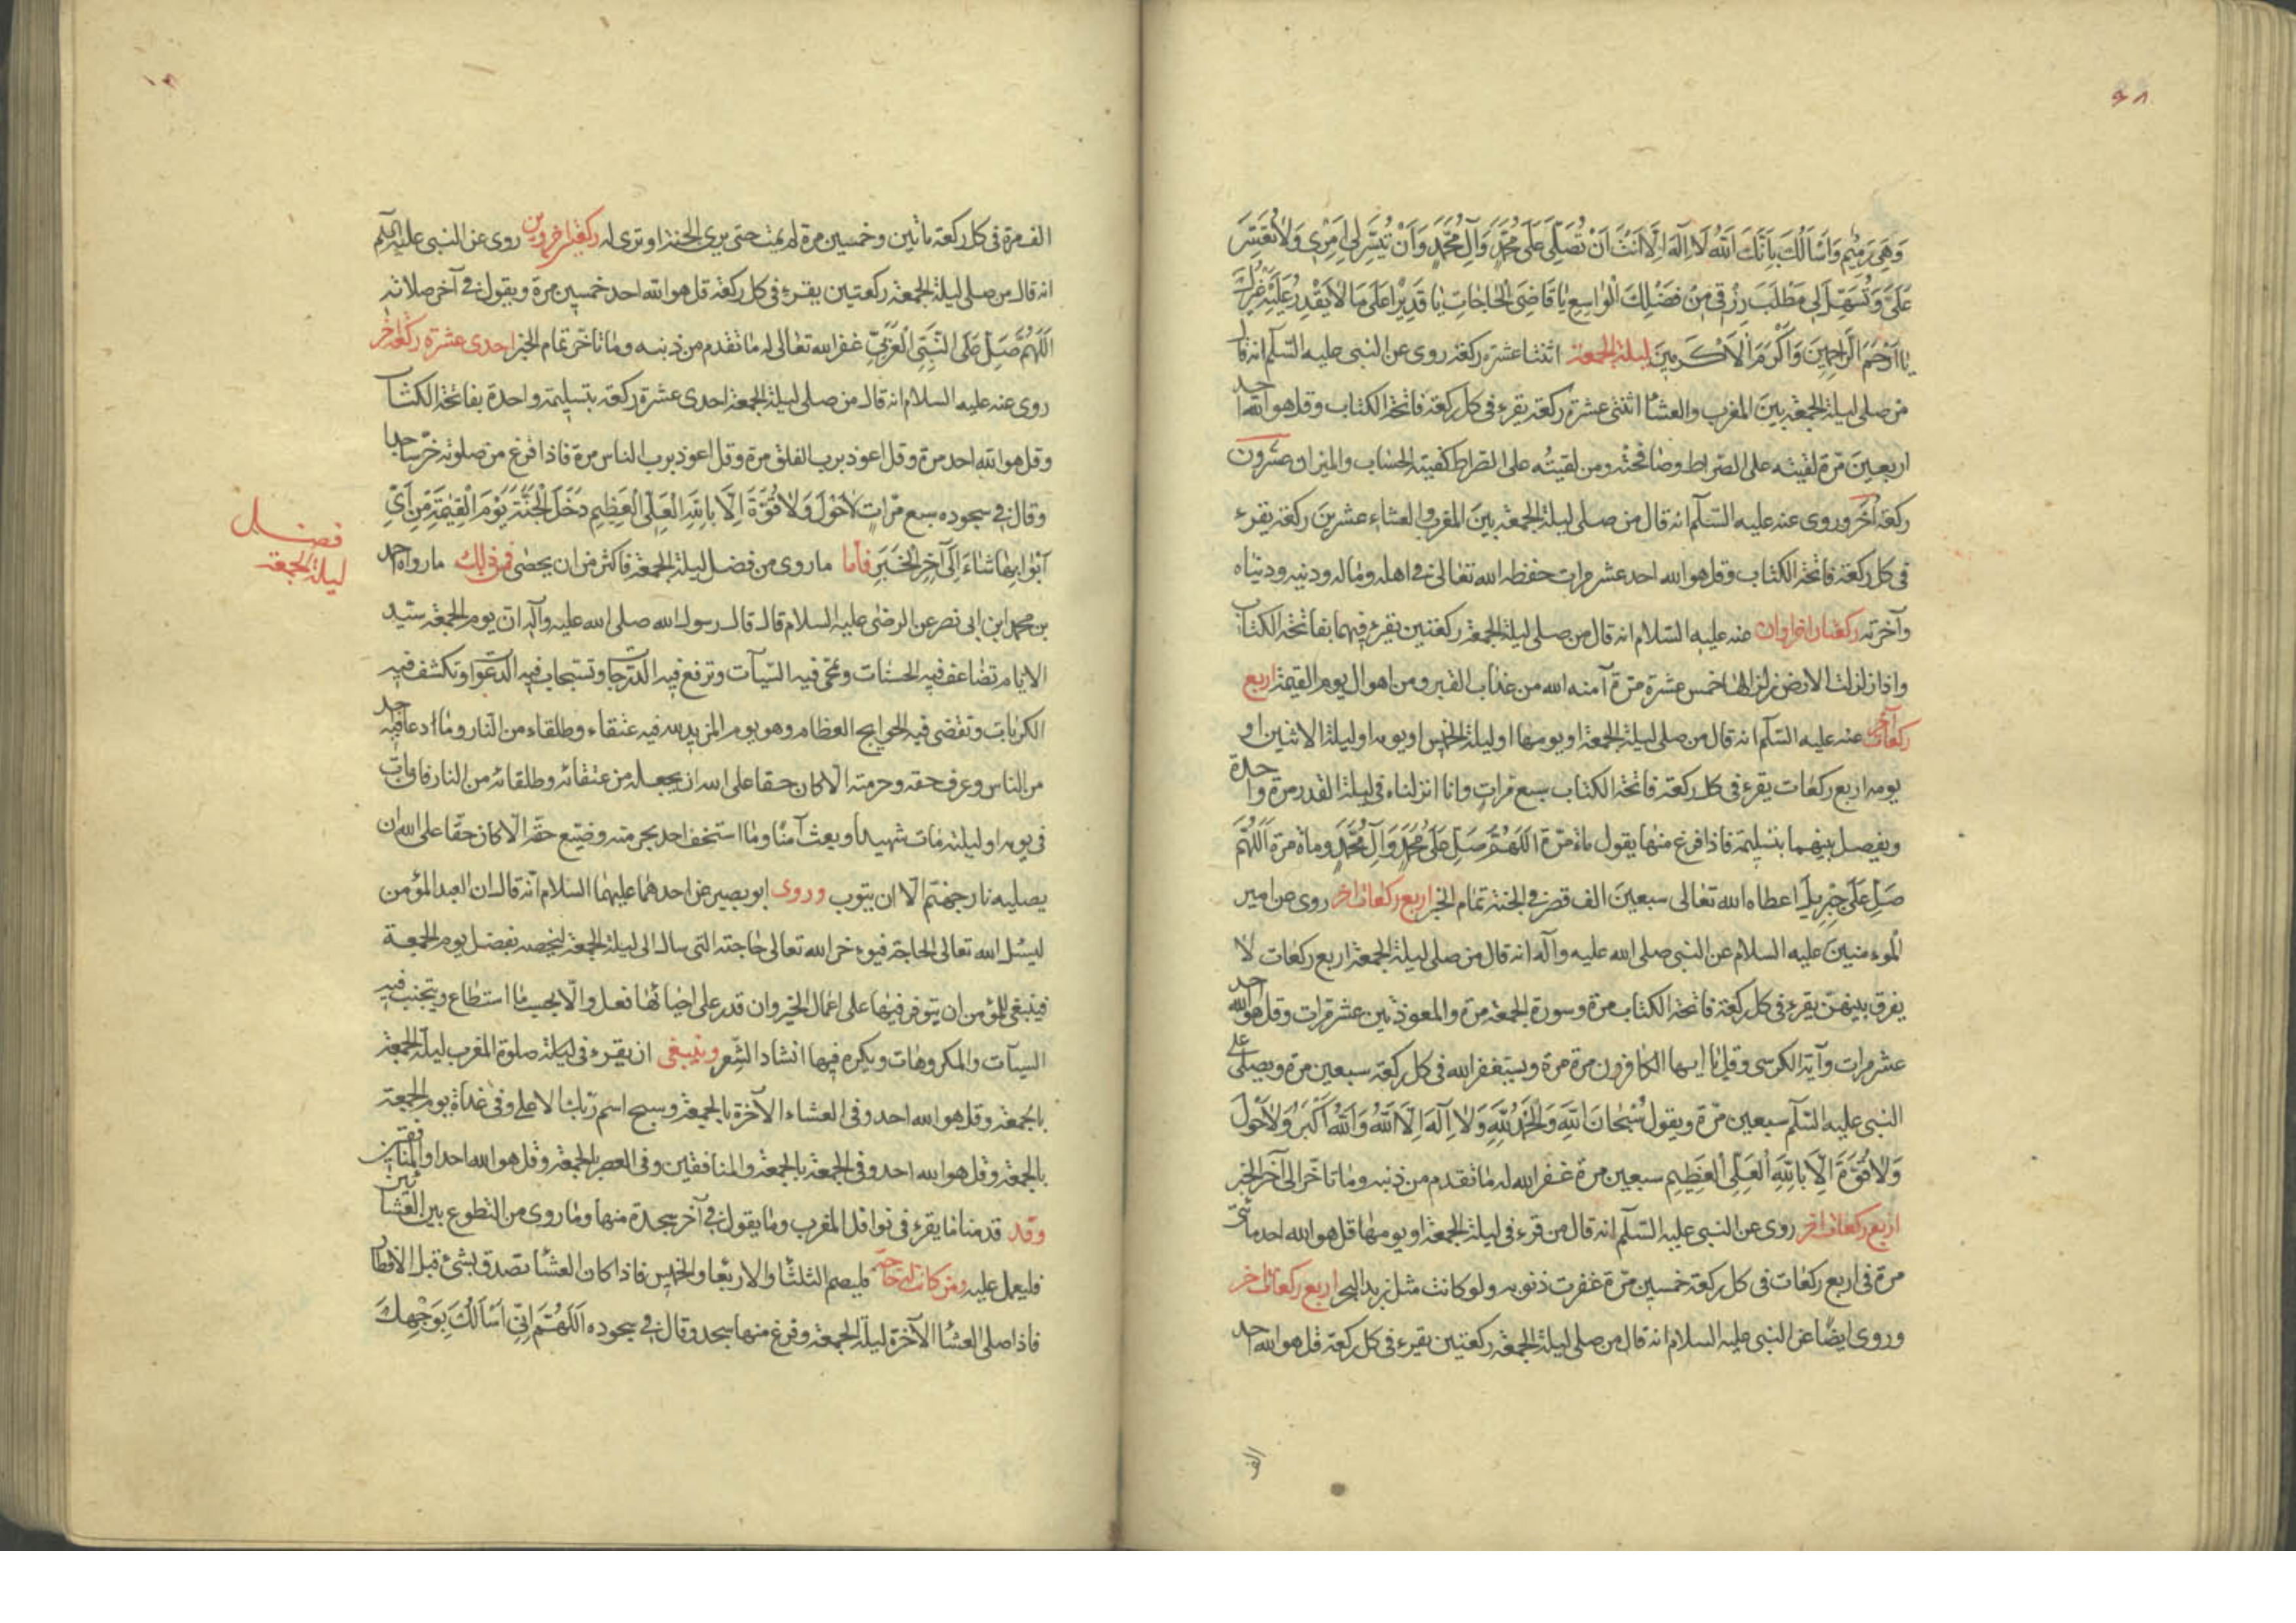 ٩٨
وَهِيَ رَمِيمٌ وَاَسْأَلُكَ بِاَنَّكَ اَللّٰهُ لَا اِلٰهَ اِلَّا اَنْتَ اَنْ تُصَلِّيَ عَلَى مُحَمَّدٍ وَآلِ مُحَمَّدٍ وَاَنْ تُيَسِّرَ لِي اَمْرِي وَلَا تُعَسِّرَ
عَلَيَّ وَتُسَهِّلَ لِي مَطْلَبَ رِزْقِي مِنْ فَضْلِكَ الْوَاسِعِ يَا قَاضِيَ الْحَاجَاتِ يَا قَدِيرًا عَلَى مَا لَا يَقْدِرُ عَلَيْهِ غَيْرُكَ
يَا اَرْحَمَ الرَّاحِمِينَ وَاَكْرَمَ الْاَكْرَمِينَ ليلة الجمعة اثنتا عشرة ركعة روى عن النبى عليه السّلم انه قال
من صلى ليلة الجمعة بين المغرب والعشا اثنتى عشرة ركعة يقرء فى كل ركعة فاتحة الكتاب وقل هو الله احد
اربعين مرّة لقيته على الصّراط وصافحته ومن لقيته على الصّراط كفيته الحساب والميزان عشرون
ركعة اخر وروى عنه عليه السّلم انه قال من صلى ليلة الجمعة بين المغرب والعشاء عشرين ركعة يقرء
فى كل ركعة فاتحة الكتاب وقل هو الله احد عشر مرات حفظه الله تعالى فى اهله وماله ودينه ودنياه
وآخرته ركعتان اخراوان عنه عليه السّلام انه قال من صلى ليلة الجمعة ركعتين يقرء فيهما بفاتحة الكتاب
واذا زلزلت الارض زلزالها خمس عشرة مرّة آمنه الله من عذاب القبر ومن اهوال يوم القيمة اربع
ركعات اخر عنه عليه السّلم انه قال من صلى ليلة الجمعة او يومها او ليلة الخميس او يومه او ليلة الاثنين او
يومه اربع ركعات يقرء فى كل ركعة فاتحة الكتاب سبع مرات وانا انزلناه فى ليلة القدر مرة واحدة
ويفصل بينهما بتسليمة فاذا فرغ منها يقول مائة مرّة اَللّٰهُمَّ صَلِّ عَلَى مُحَمَّدٍ وَآلِ مُحَمَّدٍ ومائة مرّة اَللّٰهُمَّ
صَلِّ عَلَى جِبْرِيلَ اعطاه الله تعالى سبعين الف قصر فى الجنة تمام الخبر اربع ركعات اخر روى عن امير
الموءمنين عليه السلام عن النبى صلى الله عليه وآله انه قال من صلى ليلة الجمعة اربع ركعات لا
يفرق بينهنّ يقرء فى كل ركعة فاتحة الكتاب مرّة وسورة الجمعة مرّة والمعوذتين عشر مرات وقل هو الله احد
عشر مرات وآية الكرسى وقل يا ايها الكافرون مرة مرة ويستغفر الله فى كل ركعة سبعين مرة ويصلى على
النبى عليه السّلم سبعين مرّة ويقول سُبْحَانَ اللّٰهِ وَالْحَمْدُ لِلّٰهِ وَلَا اِلٰهَ اِلَّا اللّٰهُ وَاللّٰهُ اَكْبَرُ وَلَا حَوْلَ
وَلَا قُوَّةَ اِلَّا بِاللّٰهِ الْعَلِيِّ الْعَظِيمِ سبعين مرة غفر الله له ما تقدم من ذنبه وما تاخّر الى آخر الخبر
اربع ركعات اخر روى عن النبى عليه السّلم انه قال من قرء فى ليلة الجمعة او يومها قل هو الله احد مائتى
مرة فى اربع ركعات فى كل ركعة خمسين مرّة غفرت ذنوبه ولو كانت مثل زبد البحر اربع ركعات اخر
وروى ايضًا عن النبى عليه السلام انه قال من صلى ليلة الجمعة ركعتين يقرء فى كل ركعة قل هو الله احد
الف
الف مرة فى كل ركعة مائتين وخمسين مرة لم يمت حتى يرى الجنة او ترى له ركعتين اخروين روى عن النبى عليه السلم
انه قال من صلى ليلة الجمعة ركعتين يقرء فى كل ركعة قل هو الله احد خمسين مرة ويقول فى آخر صلاته
اَللّٰهُمَّ صَلِّ عَلَى النَّبِيِّ الْعَرَبِيِّ غفر الله تعالى له ما تقدم من ذنبه وما تاخّر تمام الخبر احدى عشرة ركعة اخر
روى عنه عليه السلام انه قال من صلى ليلة الجمعة احدى عشرة ركعة بتسليمة واحدة بفاتحة الكتاب
وقل هو الله احد مرة وقل اعوذ برب الفلق مرة وقل اعوذ برب الناس مرة فاذا فرغ من صلوته خرّ ساجدا
وقال فى سجوده سبع مرّات لَا حَوْلَ وَلَا قُوَّةَ اِلَّا بِاللّٰهِ الْعَلِيِّ الْعَظِيمِ دَخَلَ الْجَنَّةَ يَوْمَ الْقِيٰمَةِ مِنْ اَيِّ
اَبْوَابِهَا شَاءَ اِلَى آخِرِ الْخَبَرِ فأما ما روى من فضل ليلة الجمعة فاكثر من ان يحصى فمن ذلك ما رواه احمد
بن محمد ابن ابى نصر عن الرضى عليه السلام قال قال رسول الله صلى الله عليه وآله ان يوم الجمعة سيّد
الايام تضاعف فيه الحسنات وتمحى فيه السّيآت وترفع فيه الدّرجات وتستجاب فيه الدّعوات وتكشف فيه
الكربات وتقضى فيه الحوايج العظام وهو يوم المزيد لله فيه عتقاء وطلقاء من النار وما دعا فيه احد
من الناس وعرف حقه وحرمته الّا كان حقا على الله ان يجعله من عتقائه وطلقائه من النار فان مات
فى يومه او ليلته مات شهيدا وبعث آمنًا وما استخف احد بحرمته وضيّع حقّه الّا كان حقّا على الله ان
يصليه نار جهنّم الّا ان يتوب وروى ابو بصير عن احدهما عليهما السلام انّه قال ان العبد المؤمن
ليسئل الله تعالى الحاجة فيوءخر الله تعالى حاجته التى سال الى ليلة الجمعة ليخصه بفضل يوم الجمعة
فينبغى للمؤمن ان يتوفر فيها على اعمال الخير وان قدر على احيائها فعل والّا بحسب ما استطاع ويتجنب فيه
السيآت والمكروهات ويكره فيها انشاد الشّعر وينبغى ان يقرء فى ليلة صلوة المغرب ليلة الجمعة
بالجمعة وقل هو الله احد وفى العشاء الآخرة بالجمعة وسبح اسم ربّك الاعلى وفى غداة يوم الجمعة
بالجمعة وقل هو الله احد وفى الجمعة بالجمعة والمنافقين وفى العصر بالجمعة وقل هو الله احد او المنافقين
وقد قدمنا ما يقرء فى نوافل المغرب وما يقول فى آخر سجدة منها وما روى من التطوع بين العشائين
فليعمل عليه ومن كانت له حاجة فليصم الثلثا والاربعا والخميس فاذا كان العشا تصدق بشئ قبل الافطار
فاذا صلى العشا الآخرة ليلة الجمعة وفرغ منها سجد وقال فى سجوده اَللّٰهُمَّ اِنِّي اَسْأَلُكَ بِوَجْهِكَ
فضل
ليلة الجمعة